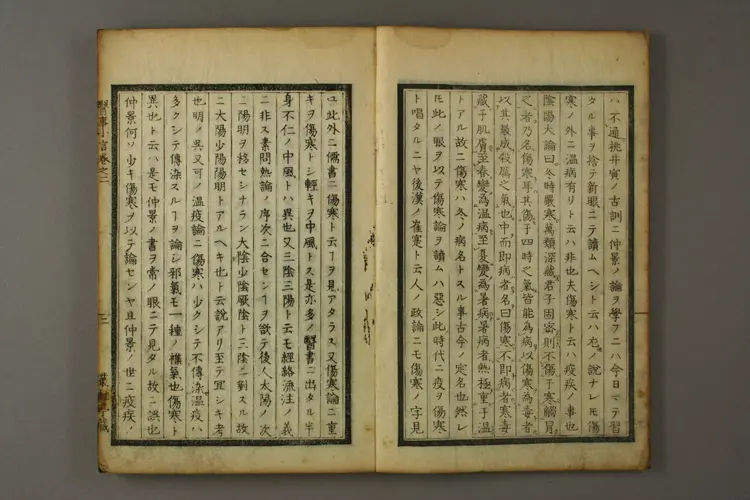 ハ不通桃井寅ノ古訓ニ仲景ノ論ヲ學フニハ今日マテ習
タル事ヲ捨テ新眼ニテ讀ムヘシト云ハ尤ノ說ナレ𪜈傷
寒ノ外ニ溫病有リト云ハ非也夫傷寒ト云ハ疫疾ノ事也
陰陽大論曰冬時嚴寒萬類深藏君子固密則不傷于寒觸冒
之者乃名傷寒耳其傷于四時之氣皆能為病以傷寒為毒者
以其最成殺厲之氣也中而即病者名曰傷寒不即病者寒毒
藏于肌膚至春變為溫病至夏變為暑病暑病者熱極重于溫
トアル故ニ傷寒ハ冬ノ病名トスル事古今ノ定名也然レ
𪜈此ノ眼ヲ以テ傷寒論ヲ讀ムハ惡シ此時代ニ疫ヲ傷寒
ト唱タルニヤ後漢ノ崔寔ト云人ノ政論ニモ傷寒ノ字見
ユ此外ニ儒書ニ傷寒ト云ヿヲ見アタラス又傷寒論ニ重
キヲ傷寒トシ輕キヲ中風トス是亦多ノ醫書ニ出タル半
身不仁ノ中風トハ異也又三陰三陽ト云モ經絡流注ノ義
ニ非ス素問熱論ノ序次ニ合センヿヲ欲テ後人太陽ノ次
ニ陽明ヲ移セシナラン大陰少陰厥陰ト三陰ニ對スル故
ニ大陽少陽陽明トアルヘキ也ト云說アリ至テ宜シキ考
也明ノ吳又可ノ溫疫論ニ傷寒ハ少クシテ不傳染溫疫ハ
多クシテ傳染スルヿヲ論シ邪氣モ一種ノ襍氣也傷寒ト
異也ト云ハ是モ仲景ノ書ヲ常ノ眼ニテ見タル故ニ誤也
仲景何ソ少キ傷寒ヲ以テ論センヤ且仲景ノ世ニ疫疾ノ
醫事小言卷之二
二